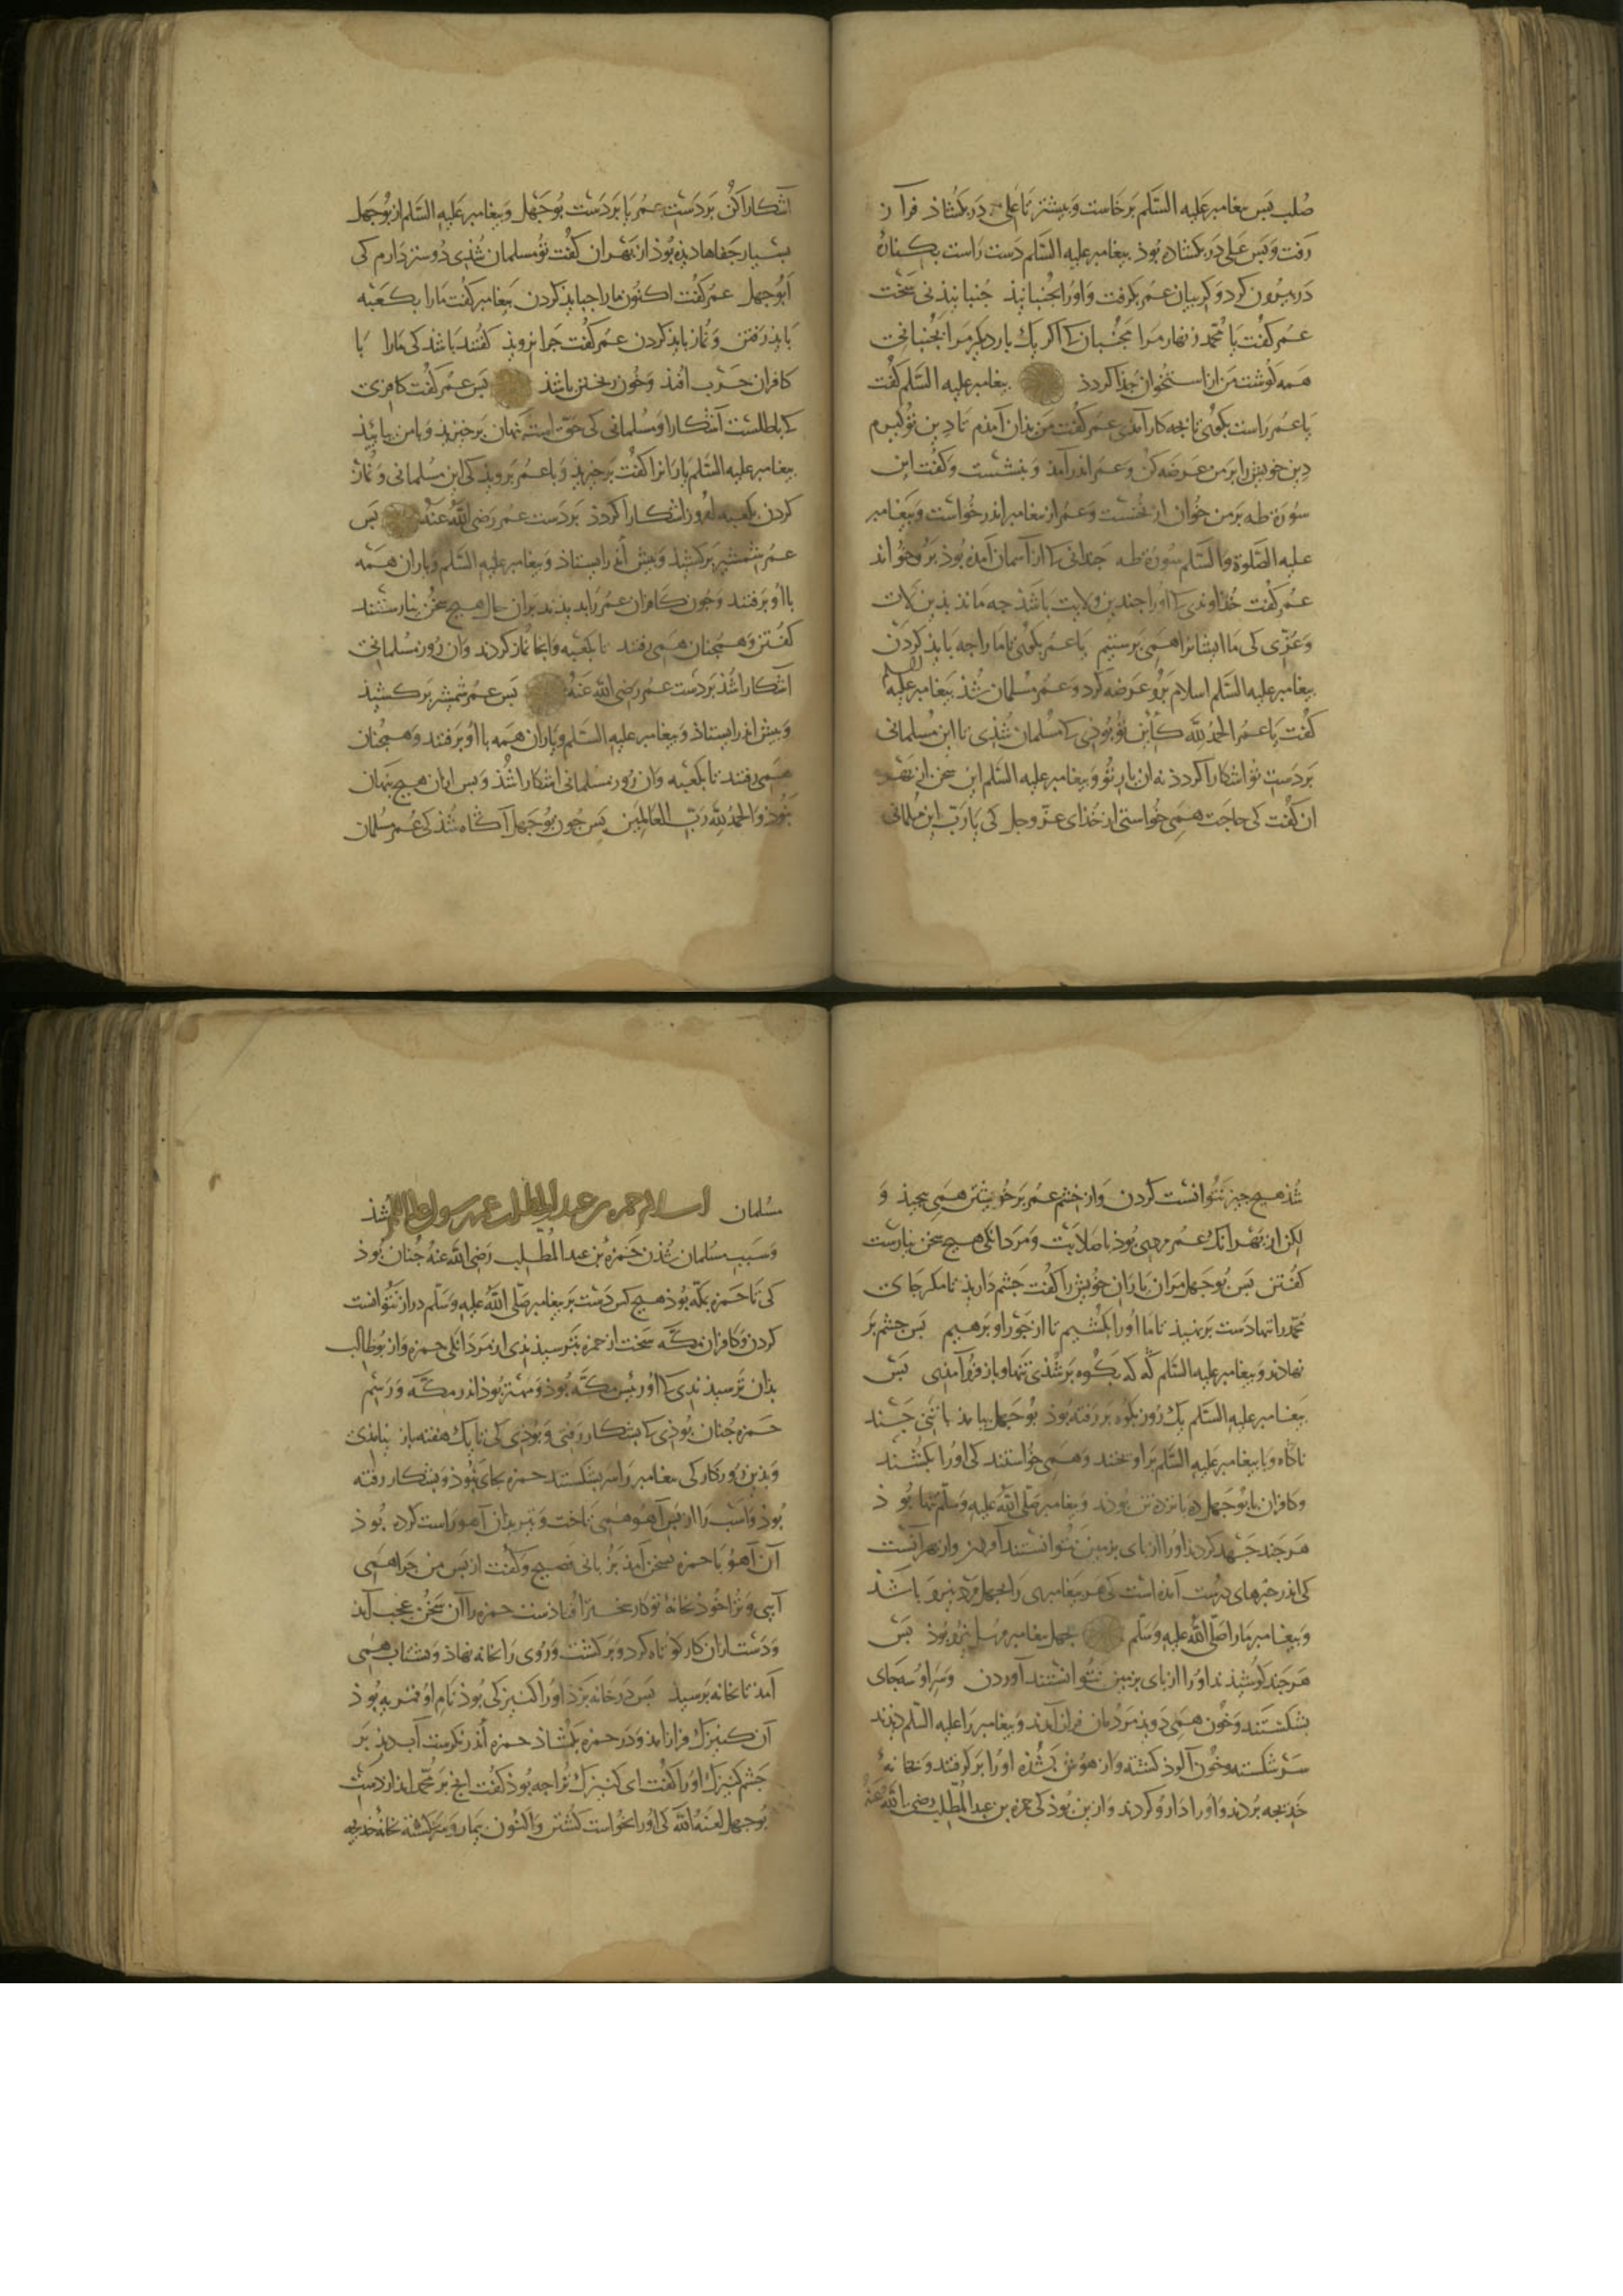 صُلب بَس بیغامبر علیه السَّلم بَرخاست وَبیشتر تا علی دَر بکشاذ فرآز
رَفت وَبَس عَلی دَر بکشاده بُوذ بیغامبر علیه السَّلم دَست رَاست بکنارهٔ
دَر بیرُون کرد وَکریبان عمَر بکرفت وَاوُرا بجُنبانیذ جُنبانیذنی سَخت
عمَر کفت یا محَمّد زنهار مَرا مَجُنبان کی اکر یک بار دیکر مَرا بجُنبانی
هَمه کوشت مَن از استخوان جذا کردذ بیغامبر علیه السَّلم کفت
یا عمَر راست بکوی تا بجه کار آمذی عمَر کفت مَن بذان آمذم تا دین تو کیرم
دین خویش را بر مَن عَرضه کن وَعمَر اندر آمذ وَبنشست وَکفت این
سُورَة طه بَر مَن خوان از نخست وَعمَر از بیغامبر اندر خواست وَبیغامبر
علیه الصَّلوة وَالسَّلم سُورَة طه جندانی کی از آسمان آمذه بُوذ بَرو خواند
عمَر کفت خذاوندی کی اورا جندین ولایت باشذ جه ماند بذین لات
وَعزی کی ما ایشانرا همی بَرستیم یا عمَر بکوی تا مارا جه بایذ کردَن
بیغامبر علیه السَّلم اسلام بَرو عَرضه کرد وَعمَر مسلمان شذ بیغامبر علیه السلم
کفت یا عمَر الحمدُ للّه کاین تو بُوذی کی مسلمان شذی تا این مسلمانی
بَر دَست تو اشکارا کردذ نه ان یار تو وَبیغامبر علیه السَّلم این سخن از بهر
ان کفت کی حاجت همی خواستی از خذای عزّ وجل کی یا رَبّ این مسلمانی
آشکارا کن بَر دَست عمَر یا بَر دَست بُوجَهل وَبیغامبر عَلیه السَّلم از بُوجَهل
بسیار جفاها دیذه بُوذ از بَهر ان کفت تو مسلمان شذی دوستر دارم کی
اَبُوجهل عمَر کفت اکنون مارا جه بایذ کردن بیغامبر کفت مارا بکعبه
بایذ رَفتن وَنماز بایذ کردن عمَر کفت جرا نروید کفتند باشد کی مارا با
کافران حَرب افتذ وَخون ریختن باشذ بَس عمَر کفت کافری
کی باطلست آشکارا وَمسلمانی کی حق است بنهان بَر خیزیذ وَبا من بیائیذ
بیغامبر علیه السَّلم یارانرا کفت بَر خیزیذ وَبا عمَر برویذ کی این مسلمانی وَنماز
کردن بکعبه امروز اشکارا کردذ بَر دَست عمر رَضی اللّه عَنه بَس
عمَر شمشیر بَرکشیذ وَبیش اندر ایستاذ وَبیغامبر علیه السَّلم وَیاران همَه
با او بَرفتند وَجون کافران عمَر را بدیذند بَران حال هیج سخن نیارستند
کفتن وَهمجنان هَمی رفتند تا بکعبه وانجا نماز کردند وان رُوز مسلمانی
اشکارا شذ بَر دَست عمَر رَضی اللّه عَنهُ بَس عمَر شمشیر بَرکشیذ
وَبیش اندر ایستاذ وَبیغامبر علیه السَّلم وَیاران همَه با او بَرفتند وَهمجنان
هَمی رفتند تا بکعبه وَان رُوز مسلمانی اشکارا شُذ وَبس ازان هیج بنهان
نبُوذ وَالحَمدُ لِلّه رَبّ العَالَمِین بَس جون بُوجَهل آکاه شذ کی عمَر مسلمان
شُذ هیج جیز نتوانست کردن وَاز خشم عمَر بَر خویشتن همی بیجیذ وَ
لکن از بهر انک عمر مردی بُوذ با صلابت وَمردانکی هیج سخن نیارست
کفتن بَس بُوجهل مر ان یاران خویش را کفت جشم داریذ تا مکر جای
محَمّد را تنها دَست بَر نهیذ تا ما اورا بکُشیم تا از جور او برهیم بَس جشم بَر
نهاذند وَبیغامبر علیه السَّلم که که بکوه بَر شذی تنها وباز فروآمذی بَس
بیغامبر علیه السَّلم یک رُوز بکوه بَر رَفته بُوذ بُوجهل بیامذ با تنی جَند
ناکاه وَبا بیغامبر علیه السَّلم بَراویختند وَهمی خواستند کی اورا بکُشند
وکافران با بُوجهل ده بانزده تن بُوذند وَبیغامبر صَلّی اللّه علیه وَسَلّم تنها بُوذ
هَرجند جَهد کردند اورا از بای بزمین نتوانستند آوردن واز بهر آنست
کی اندر خبرهای درست آمذه است کی هر بیغامبری را جهل مَرد نیرو باشَذ
وَبیغامبر مارا صَلّی اللّه علیه وَسَلّم جهل بیغامبر مرسل نیرو بُوذ بَس
هَرجند کوشیذند اورا از بای بزمین نتوانستند آوردن وَسَر او سه جای
بشکستند وَخون همی دویذ مَردمان فراز آمدند وَبیغامبر را علیه السَّلم دیذند
سَر شکسته وخون آلوذ کشته وَاز هوش بشذه اورا بَر کرفتند وَبخانهٔ
خَدیجه بُردند وَاورا دارُو کردند وَازین بُوذ کی حمزه بن عبدالمطّلب رضی اللّه عنهُ
مسلمان شذ اسلام حمزه بن عبدالمطلب عم رسول علیه السلم
وَسَبب مسلمان شذن حَمزه بن عبدالمُطَّلِب رَضی اللّه عنهُ جُنان بُوذ
کی تا حَمزه بمکّه بُوذ هیج کس دَست بَر بیغامبر صَلّی اللّه علیه وَسَلّم دراز نتوانست
کردن وَکافران مکّه سخت از حمزه بترسیذندی از مَردانکی حمزه وَاز بُوطالب
بذان تَرسیذندی کی اورئیس مکّه بُوذ وَمهتر بُوذ اندر مکّه وَرَسم
حَمزه جُنان بُوذی کی بشکار رَفتی وَبُوذی کی تا یک هفته باز نیامذی
وَبذین رُوزکار کی بیغامبر را سر بشکستند حمزه بجای نبُوذ وَبشکار رفته
بُوذ وَاَسب را از بَس آهو همی تاخت وَتیر بران آهو راست کرده بُوذ
آن آهو با حمزه بسخن آمذ بزبانی فصیح وَکفت از بَس من جرا همی
آیی وَترا خوذ بخانهٔ تو کار افتاذست حمزه را آن سَخُن عجب آمذ
وَدَست ازان کار کوتاه کرد وَبَرکشت وَرُوی را بخانه نهاذ وبشتاب همی
آمذ تا بخانه بَرسیذ بَس دَر خانه بزد اورا کنیزکی بُوذ نام او قنبریه بُوذ
آن کنیزک فراز امذ وَدَر حمزه بکشاذ حمزه اندر نکرست آب دیذ بَر
جَشم کنیزک اورا کفت ای کنیزک ترا جه بُوذ کفت انج بَر محَمّد امذ از دَست
بُوجهل لعنهُ اللّه کی اورا بخواست کشتن وَاکنون بیمار وَسرشکسته بخانهٔ خدیجه